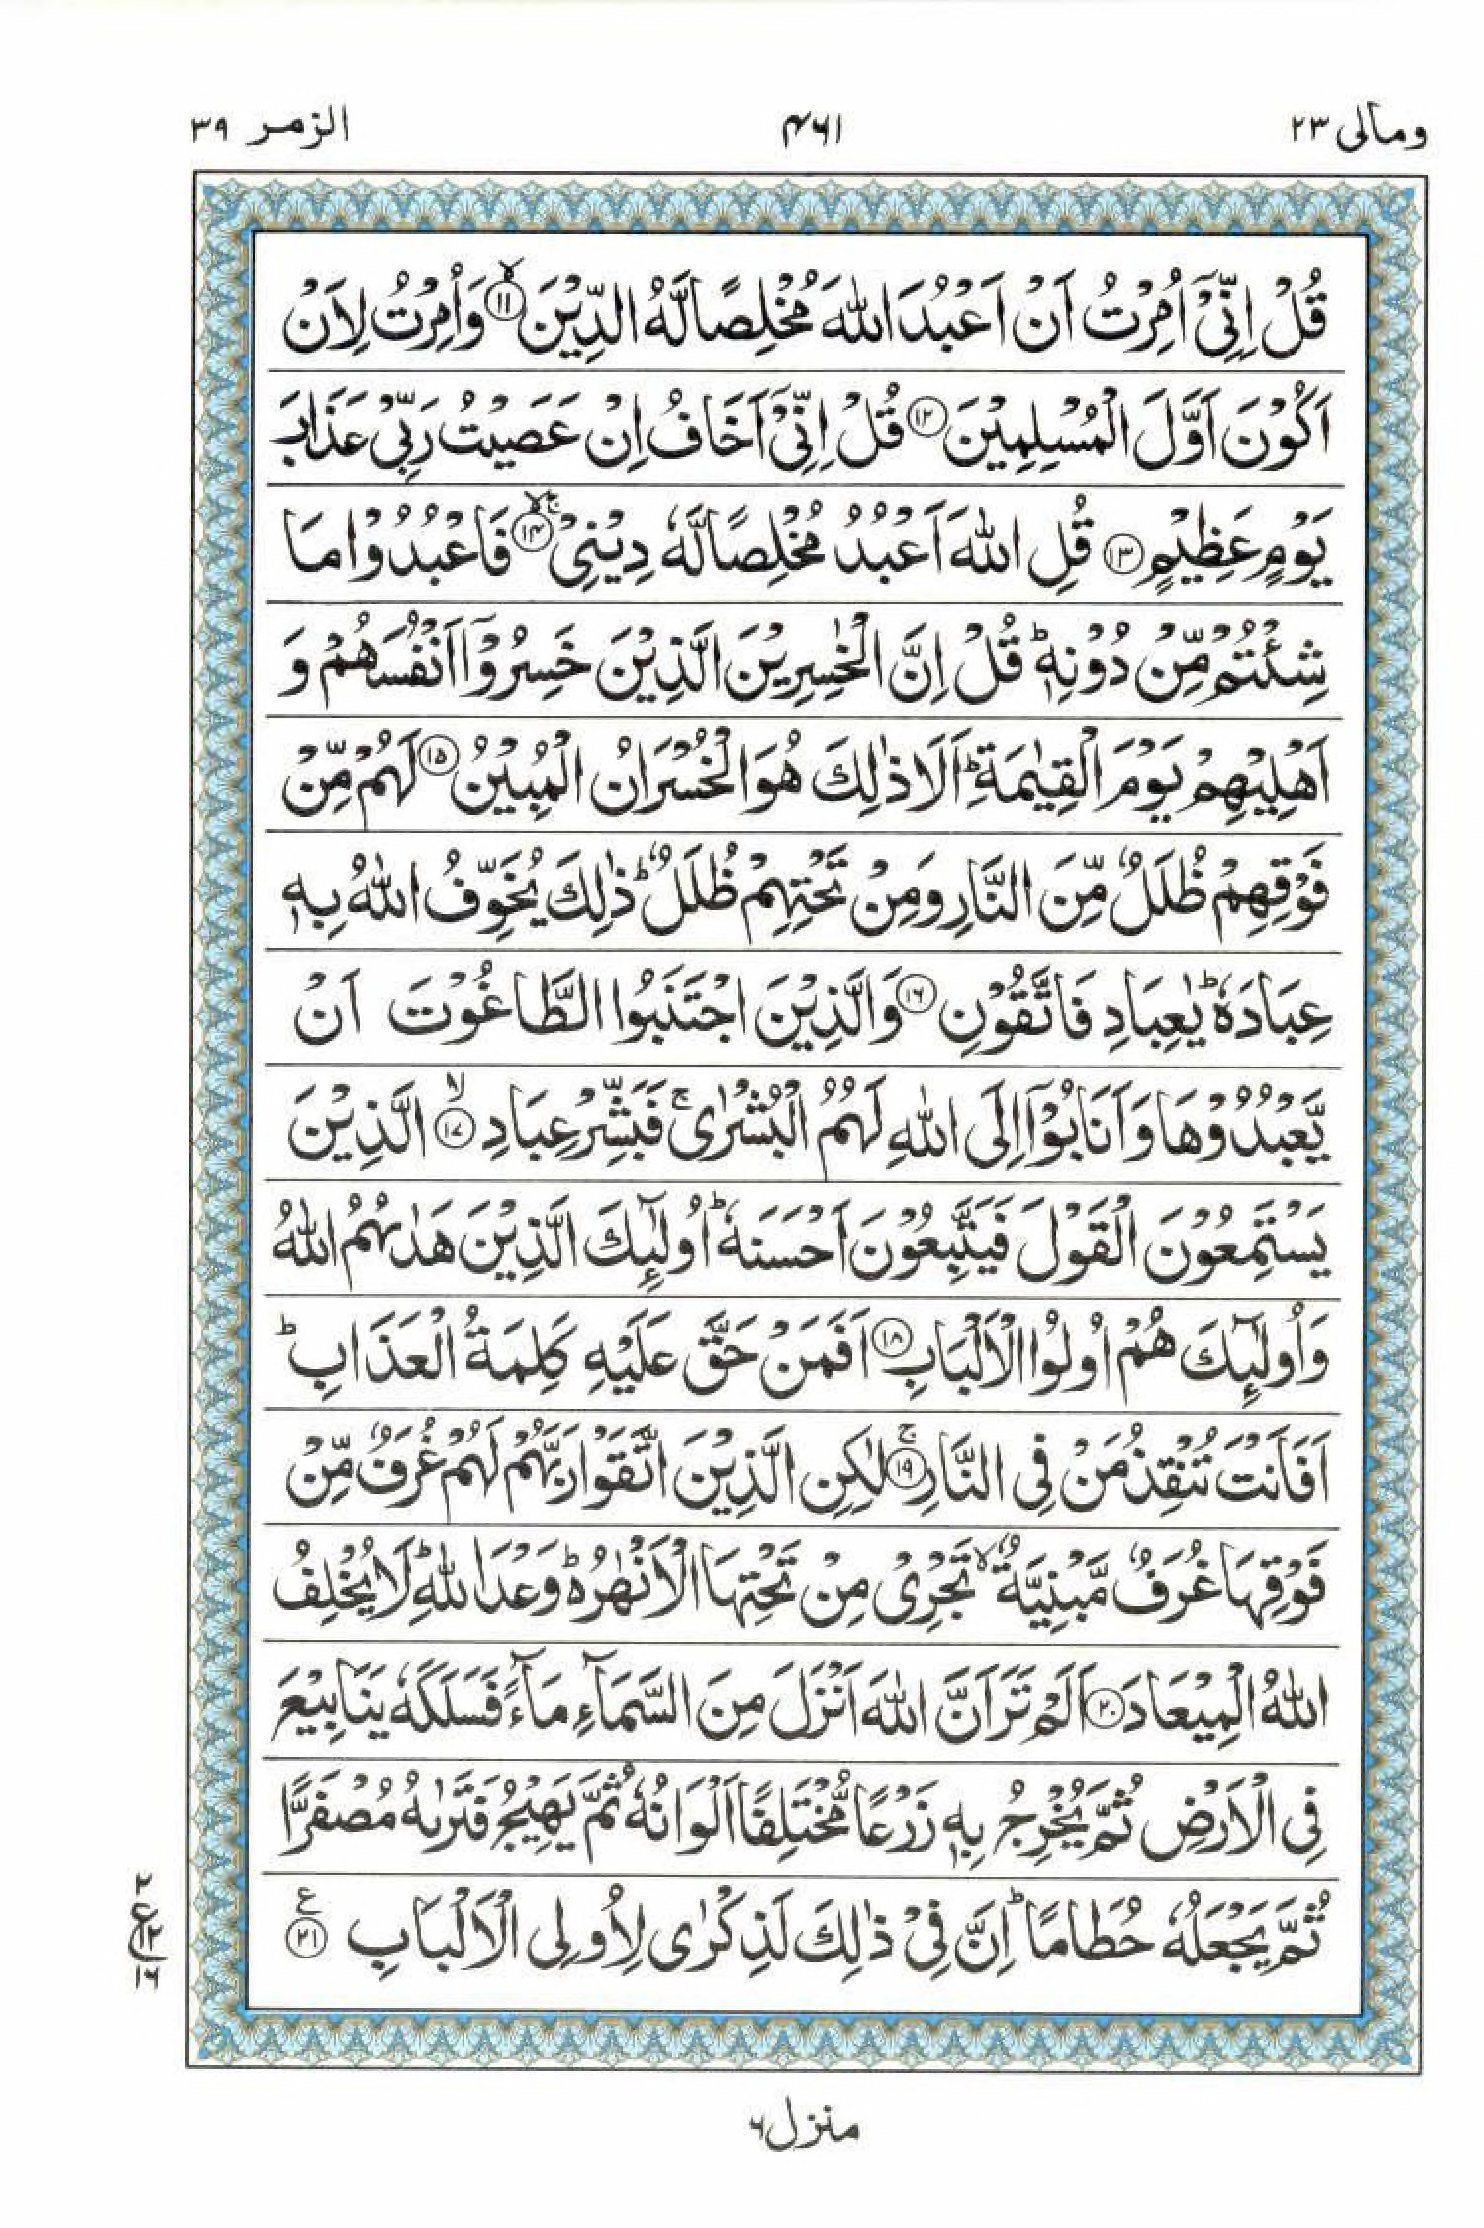 ومالی ٢٣ ۴۶۱ الزمر ٣٩
قُلْ اِنِّیْۤ اُمِرْتُ اَنْ اَعْبُدَ اللّٰهَ مُخْلِصًا لَّهُ الدِّیْنَ ۙ﴿۱۱﴾ وَاُمِرْتُ لِاَنْ
اَكُوْنَ اَوَّلَ الْمُسْلِمِیْنَ ﴿۱۲﴾ قُلْ اِنِّیْۤ اَخَافُ اِنْ عَصَیْتُ رَبِّیْ عَذَابَ
یَوْمٍ عَظِیْمٍ ﴿۱۳﴾ قُلِ اللّٰهَ اَعْبُدُ مُخْلِصًا لَّهٗ دِیْنِیْ ۙۚ﴿۱۴﴾ فَاعْبُدُوْا مَا
شِئْتُمْ مِّنْ دُوْنِهٖ ؕ قُلْ اِنَّ الْخٰسِرِیْنَ الَّذِیْنَ خَسِرُوْۤا اَنْفُسَهُمْ وَ
اَهْلِیْهِمْ یَوْمَ الْقِیٰمَةِ ؕ اَلَا ذٰلِكَ هُوَ الْخُسْرَانُ الْمُبِیْنُ ﴿۱۵﴾ لَهُمْ مِّنْ
فَوْقِهِمْ ظُلَلٌ مِّنَ النَّارِ وَمِنْ تَحْتِهِمْ ظُلَلٌ ؕ ذٰلِكَ یُخَوِّفُ اللّٰهُ بِهٖ
عِبَادَهٗ ؕ یٰعِبَادِ فَاتَّقُوْنِ ﴿۱۶﴾ وَالَّذِیْنَ اجْتَنَبُوا الطَّاغُوْتَ اَنْ
یَّعْبُدُوْهَا وَاَنَابُوْۤا اِلَی اللّٰهِ لَهُمُ الْبُشْرٰی ۚ فَبَشِّرْ عِبَادِ ۙ﴿۱۷﴾ الَّذِیْنَ
یَسْتَمِعُوْنَ الْقَوْلَ فَیَتَّبِعُوْنَ اَحْسَنَهٗ ؕ اُولٰٓئِكَ الَّذِیْنَ هَدٰىهُمُ اللّٰهُ
وَاُولٰٓئِكَ هُمْ اُولُوا الْاَلْبَابِ ﴿۱۸﴾ اَفَمَنْ حَقَّ عَلَیْهِ كَلِمَةُ الْعَذَابِ ؕ
اَفَاَنْتَ تُنْقِذُ مَنْ فِی النَّارِ ۚ﴿۱۹﴾ لٰكِنِ الَّذِیْنَ اتَّقَوْا رَبَّهُمْ لَهُمْ غُرَفٌ مِّنْ
فَوْقِهَا غُرَفٌ مَّبْنِیَّةٌ ۙ تَجْرِیْ مِنْ تَحْتِهَا الْاَنْهٰرُ ؕ وَعْدَ اللّٰهِ ؕ لَا یُخْلِفُ
اللّٰهُ الْمِیْعَادَ ﴿۲۰﴾ اَلَمْ تَرَ اَنَّ اللّٰهَ اَنْزَلَ مِنَ السَّمَآءِ مَآءً فَسَلَكَهٗ یَنَابِیْعَ
فِی الْاَرْضِ ثُمَّ یُخْرِجُ بِهٖ زَرْعًا مُّخْتَلِفًا اَلْوَانُهٗ ثُمَّ یَهِیْجُ فَتَرٰىهُ مُصْفَرًّا
ثُمَّ یَجْعَلُهٗ حُطَامًا ؕ اِنَّ فِیْ ذٰلِكَ لَذِكْرٰی لِاُولِی الْاَلْبَابِ ﴿۲۱﴾ ع
۲
ع ۱۲
۱۶
منزل ۶